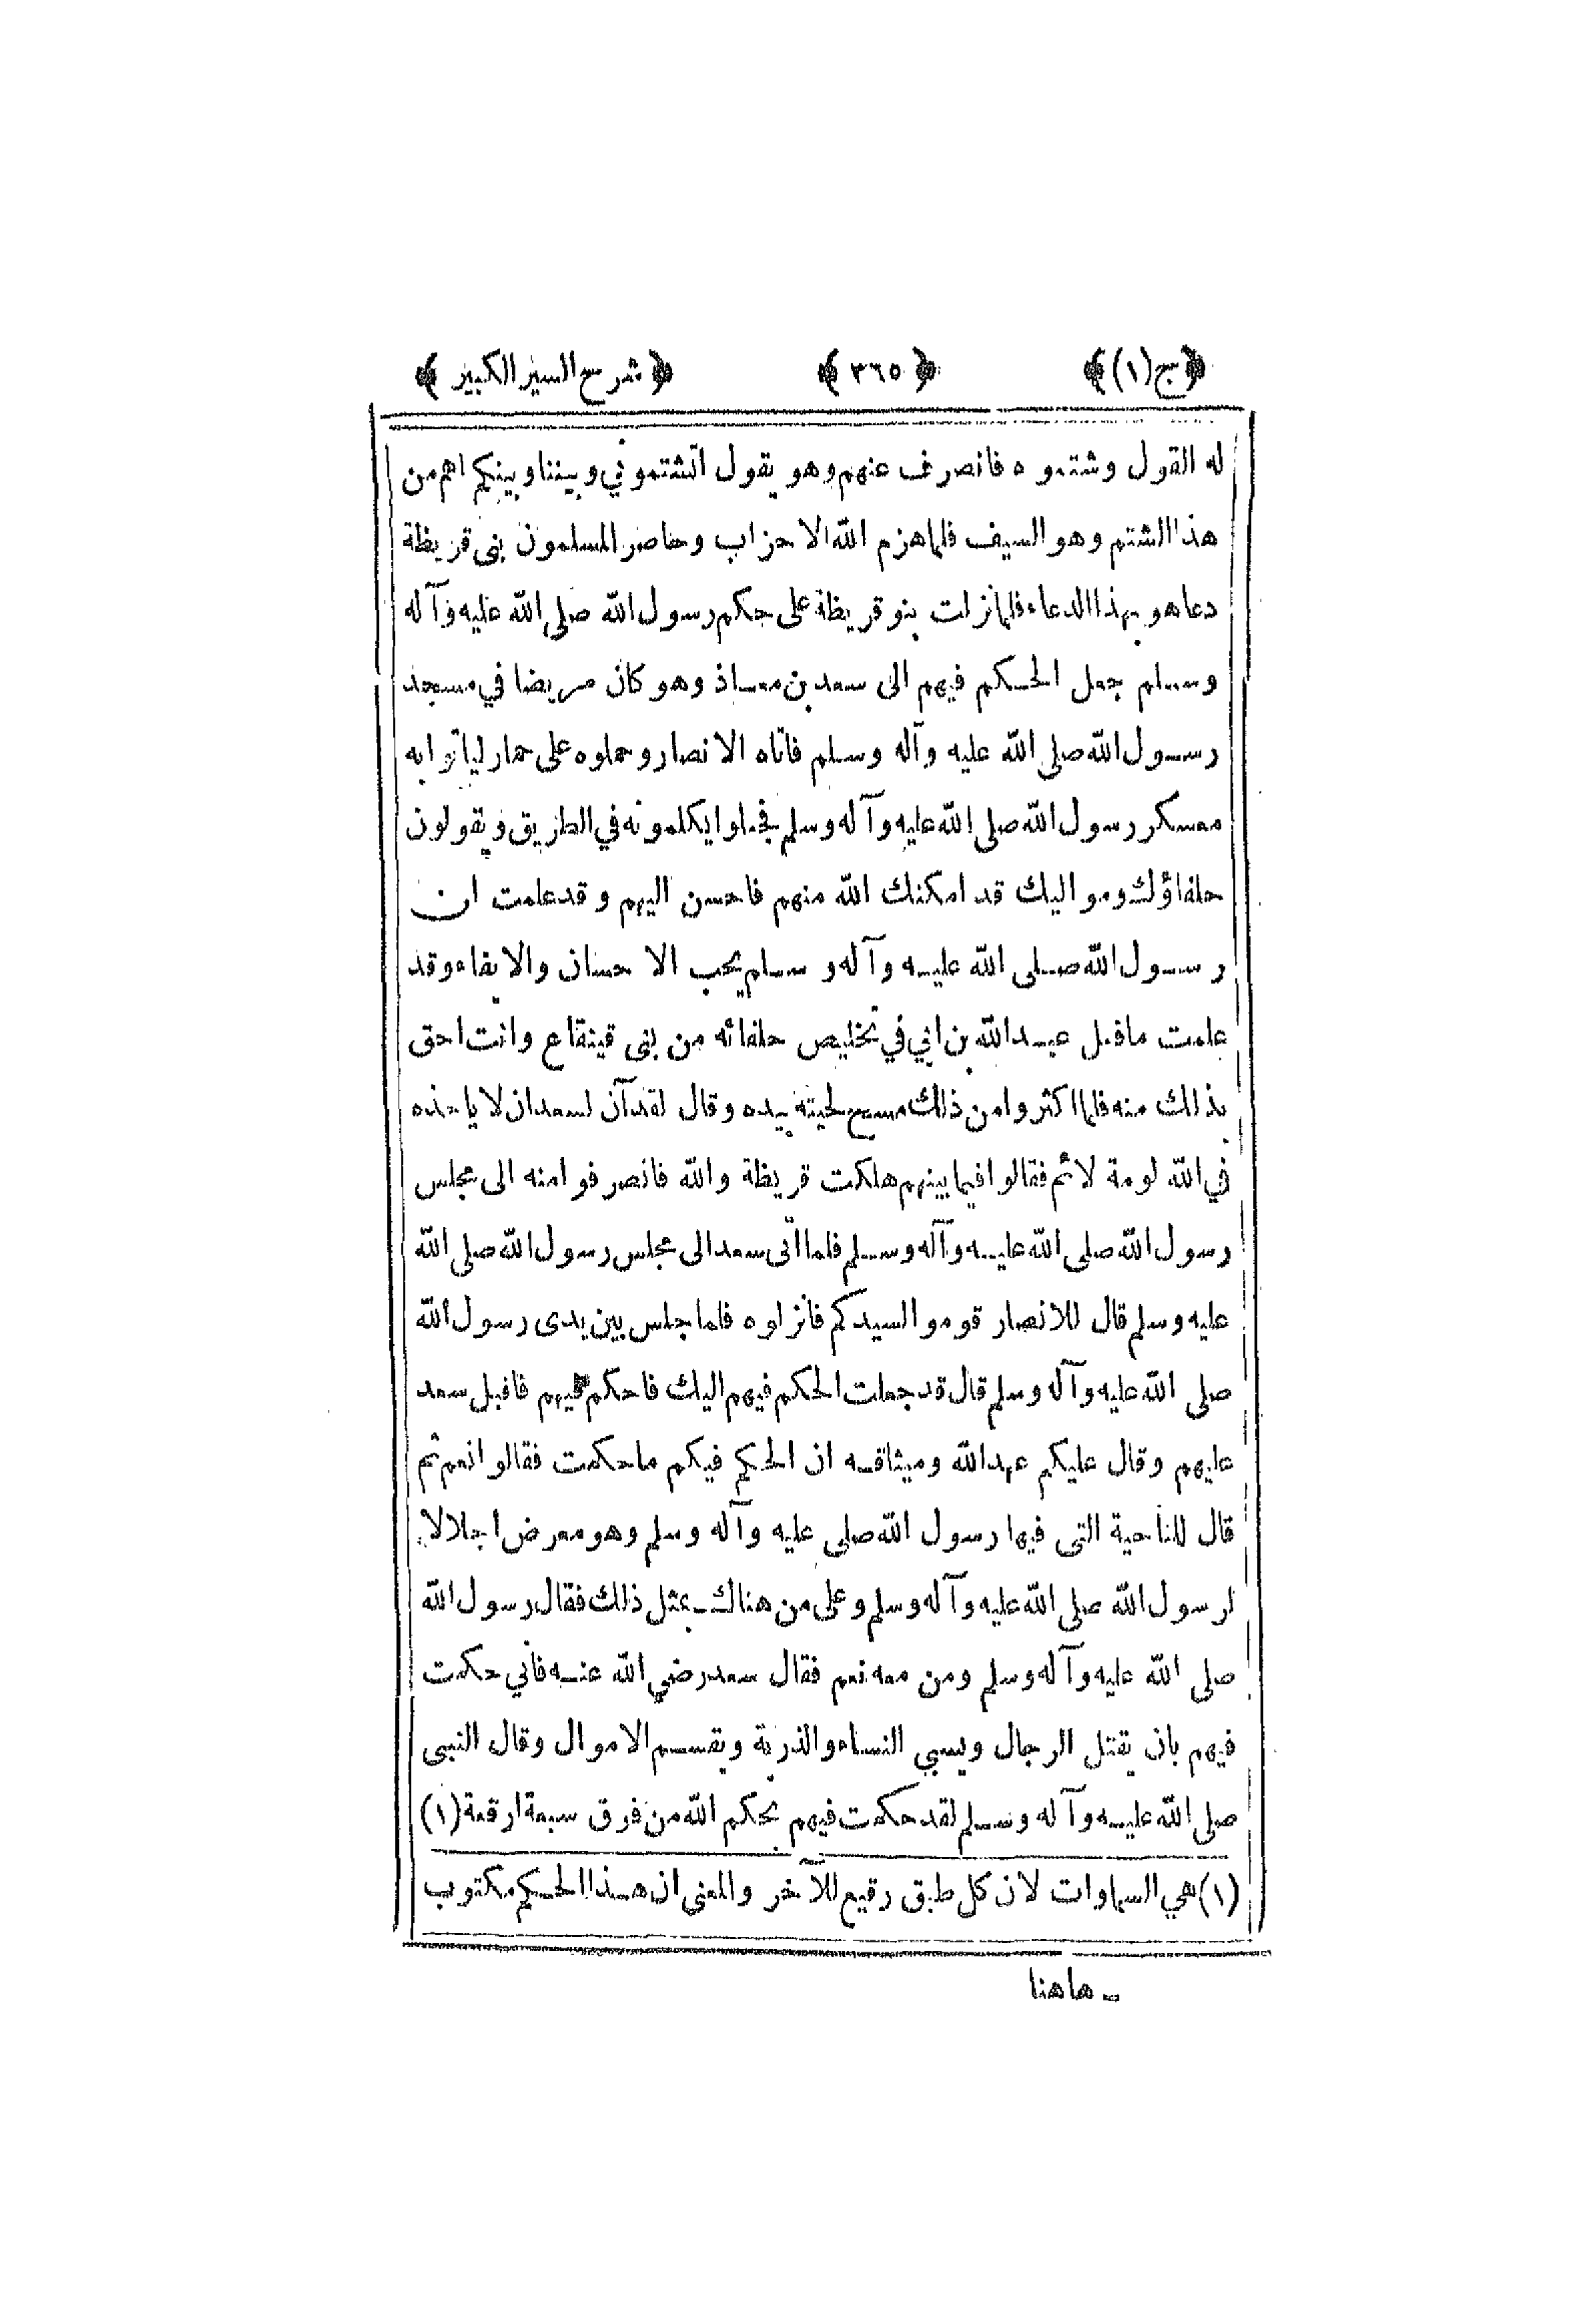 ﴿ج(١)﴾ ﴿٣٦٥﴾ ﴿شرح السير الكبير﴾
له القول وشتموه فانصرف عنهم وهو يقول اتشتموني وبيننا وبينكم اهم من
هذا الشتم وهو السيف فلما هزم الله الاحزاب وحاصر المسلمون بنى قريظة
دعا هو بهذا الدعاء فلما نزلت بنو قريظة على حكم رسول الله صلى الله عليه وآله
وسلم جعل الحكم فيهم الى سعد بن معاذ وهو كان مريضا في مسجد
رسول الله صلى الله عليه وآله وسلم فاتاه الانصار وحملوه على حمار لياتوا به
معسكر رسول الله صلى الله عليه وآله وسلم فجعلوا يكلمونه في الطريق ويقولون
حلفاؤك ومواليك قد امكنك الله منهم فاحسن اليهم وقد علمت ان
رسول الله صلى الله عليه وآله وسلم يحب الاحسان والابقاء وقد
علمت ما فعل عبد الله بن ابي في تخليص حلفائه من بنى قينقاع وانت احق
بذلك منه فلما اكثروا من ذلك مسح لحيته بيده وقال لقد آن لسعد ان لا ياخذه
في الله لومة لائم فقالوا فيما بينهم هلكت قريظة والله فانصرفوا منه الى مجلس
رسول الله صلى الله عليه وآله وسلم فلما اتى سعد الى مجلس رسول الله صلى الله
عليه وسلم قال للانصار قوموا لسيدكم فانزلوه فلما جلس بين يدى رسول الله
صلى الله عليه وآله وسلم قال قد جعلت الحكم فيهم اليك فاحكم فيهم فاقبل سعد
عليهم وقال عليكم عهد الله وميثاقه ان الحكم فيكم ما حكمت فقالوا نعم ثم
قال للناحية التى فيها رسول الله صلى عليه وآله وسلم وهو معرض اجلالا
لرسول الله صلى الله عليه وآله وسلم وعلى من هناك بمثل ذلك فقال رسول الله
صلى الله عليه وآله وسلم ومن معه نعم فقال سعد رضي الله عنه فاني حكمت
فيهم بان يقتل الرجال ويسبي النساء والذرية ويقسم الاموال وقال النبى
صلى الله عليه وآله وسلم لقد حكمت فيهم بحكم الله من فوق سبعة ارقعة (١)
(١) هي السماوات لان كل طبق رقيع للآخر والمعنى ان هذا الحكم مكتوب
ـ هاهنا